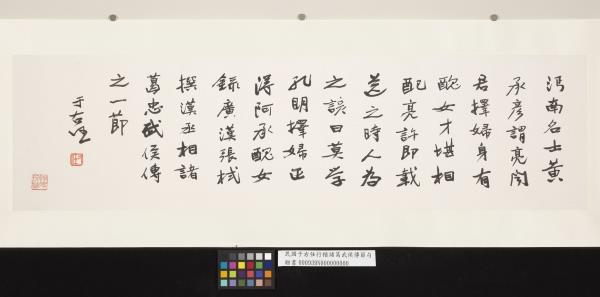 沔南名士黃
承彥謂亮聞
君擇婦身有
醜女才堪相
配亮許即載
送之時人為
之諺曰莫學
孔明擇婦正
得阿承醜女
錄廣漢張栻
撰漢丞相諸
葛忠武侯傳
之一節
于右任
民國于右任行楷諸葛武侯傳節句
贈書 000939N000000000